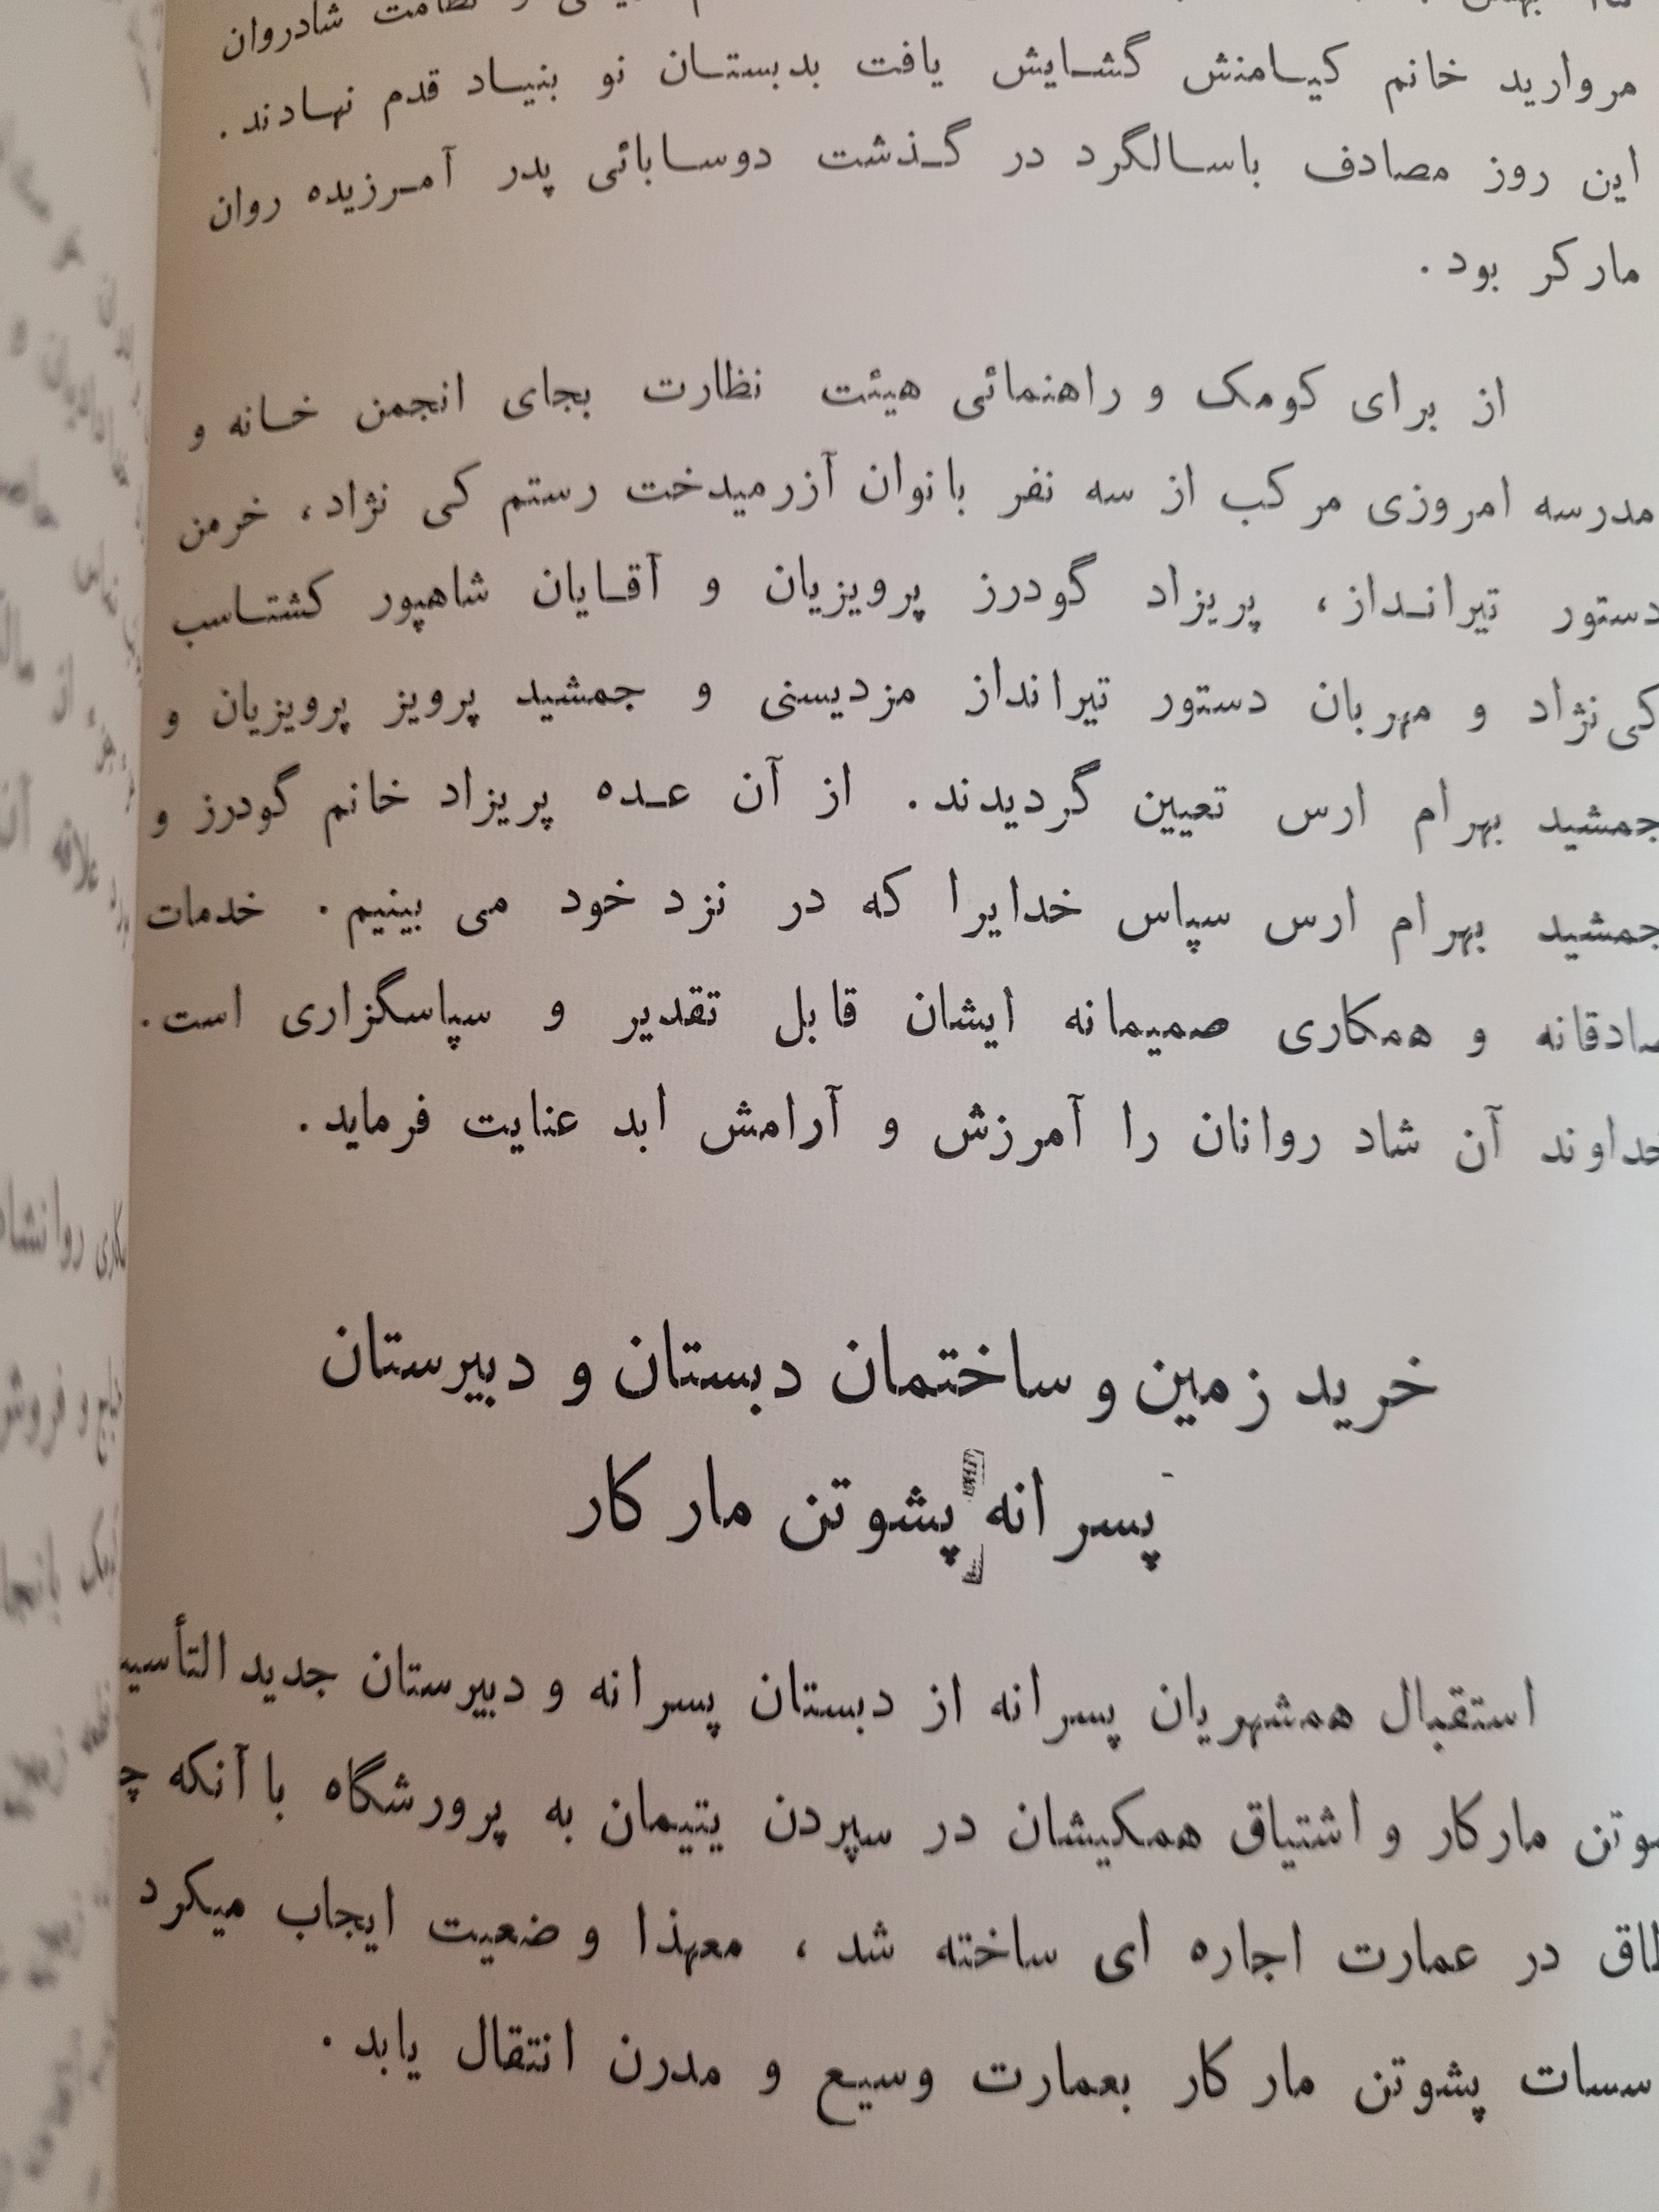 و نظامت شادروان
مروارید خانم کیامنش گشایش یافت بدبستان نو بنیاد قدم نهادند.
این روز مصادف باسالگرد در گذشت دوسابائی پدر آمرزیده روان
مارکر بود.
از برای کومک و راهنمائی هیئت نظارت بجای انجمن خانه و
مدرسه امروزی مرکب از سه نفر بانوان آزرمیدخت رستم کی نژاد، خرمن
دستور تیرانداز، پریزاد گودرز پرویزیان و آقایان شاهپور کشتاسب
کی‌نژاد و مهربان دستور تیرانداز مزدیسنی و جمشید پرویز پرویزیان و
جمشید بهرام ارس تعیین گردیدند. از آن عده پریزاد خانم گودرز و
جمشید بهرام ارس سپاس خدایرا که در نزد خود می بینیم. خدمات
صادقانه و همکاری صمیمانه ایشان قابل تقدیر و سپاسگزاری است.
خداوند آن شاد روانان را آمرزش و آرامش ابد عنایت فرماید.
خرید زمین و ساختمان دبستان و دبیرستان
پسرانه پشوتن مارکار
استقبال همشهریان پسرانه از دبستان پسرانه و دبیرستان جدید التأسی
وتن مارکار و اشتیاق همکیشان در سپردن یتیمان به پرورشگاه باآنکه چ
طاق در عمارت اجاره ای ساخته شد، معهذا وضعیت ایجاب میکرد
سسات پشوتن مارکار بعمارت وسیع و مدرن انتقال یابد.